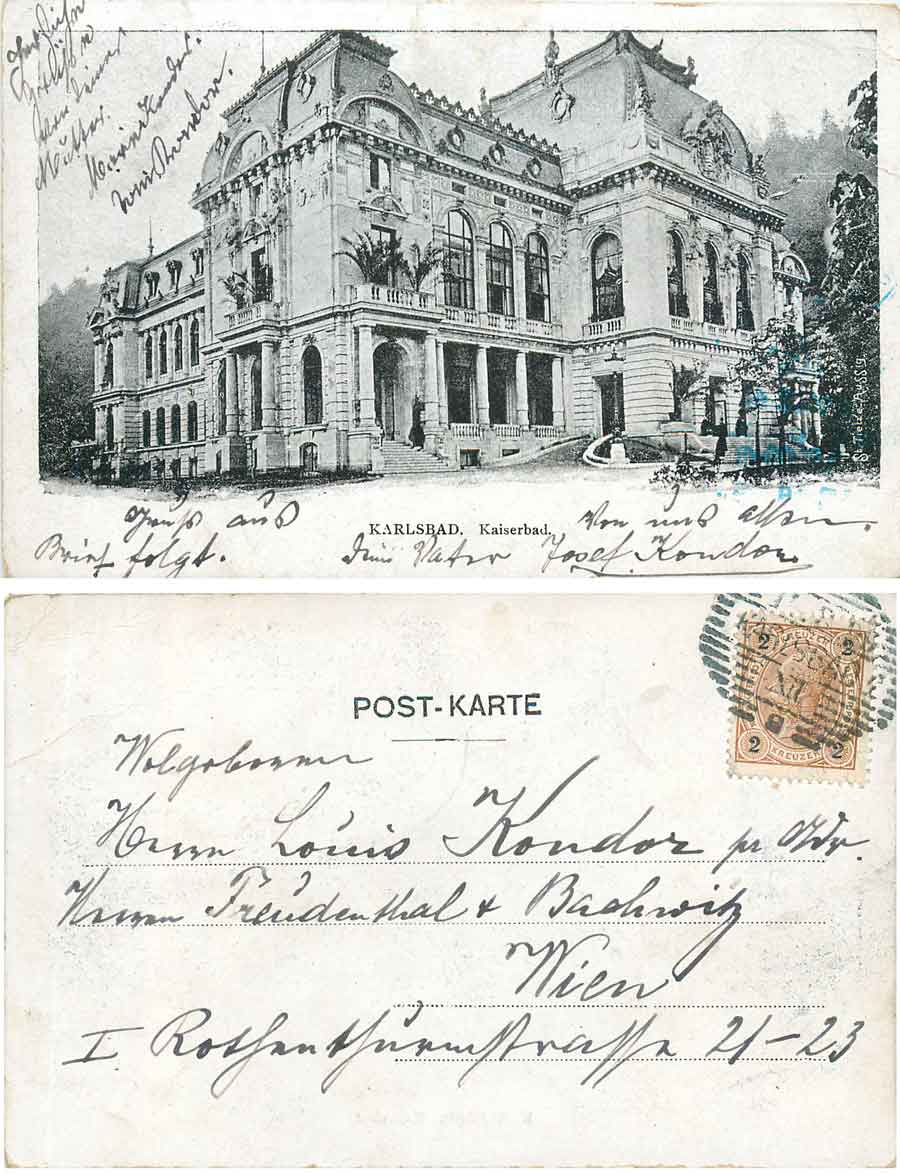 von deiner
Mutter.
Gruß aus
KARLSBAD. Kaiserbad.
Von uns allen.
Brief folgt.
dein Vater Josef Kondor
POST-KARTE
Wolgeboren
Herrn Louis Kondor pr Adr.
Herren Freudenthal & Bachwitz
Wien
I Rothenthurmstrasse 21-23
2 2
2 KREUZER 2